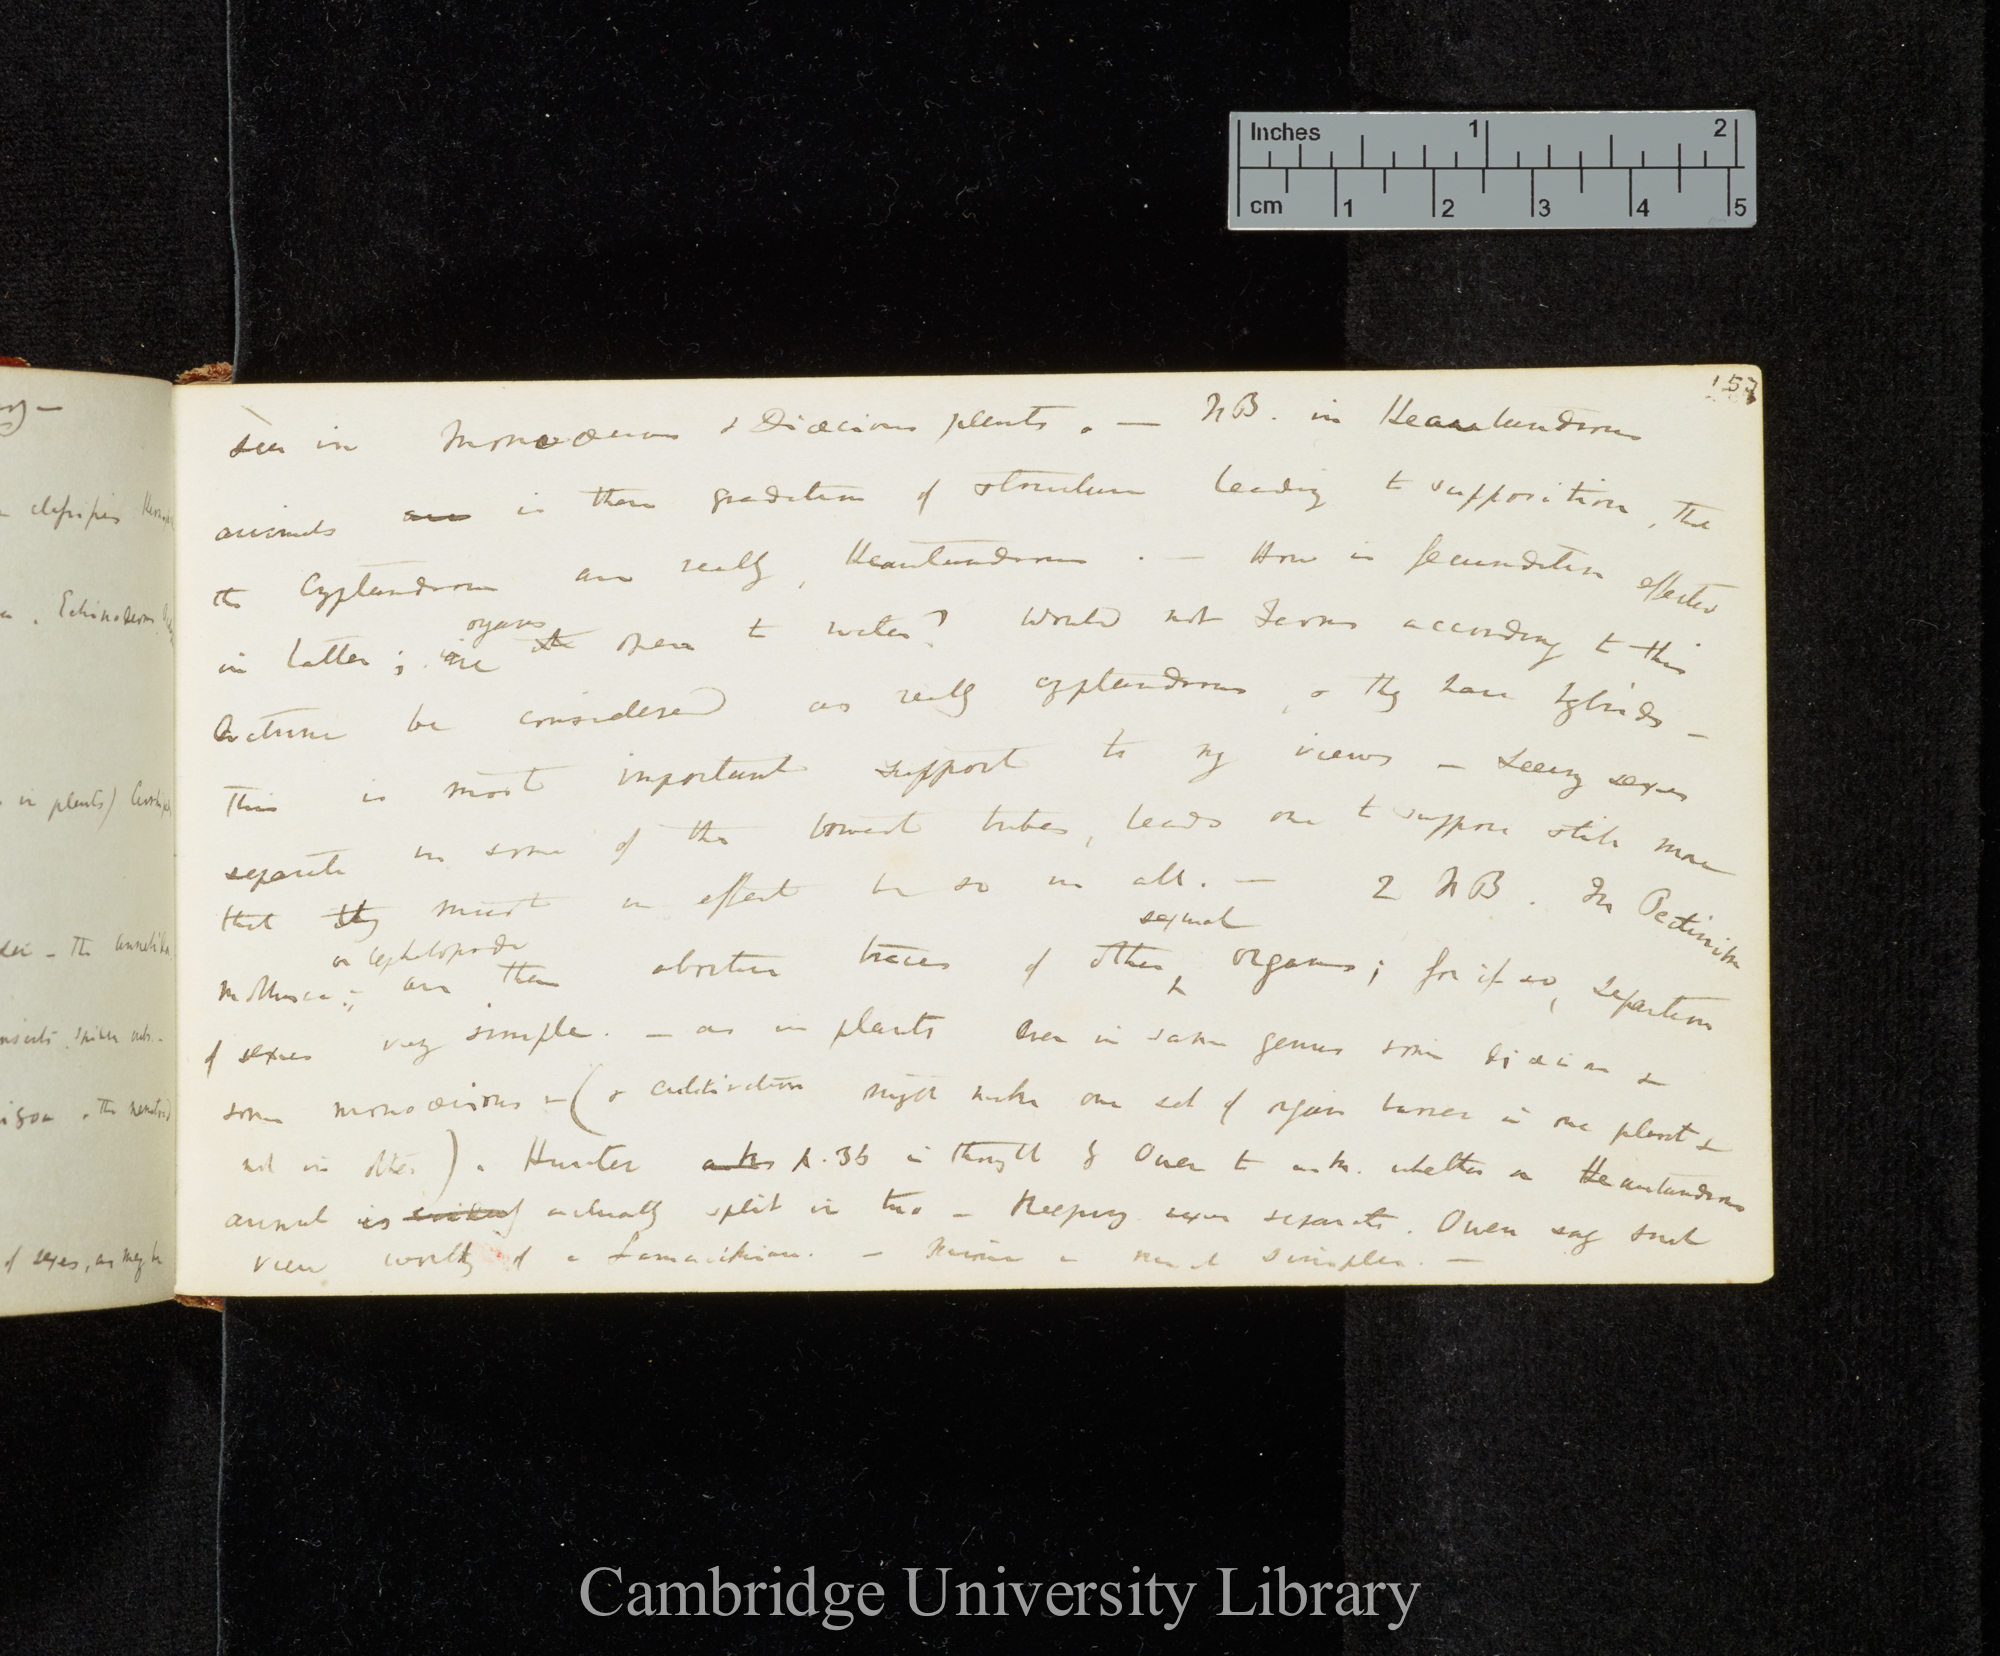 157
seen in Monoecious & Dioecious plants. — N B. in Heautandrous
animals are is there gradation of structure leading to supposition, that
the Cryptandrous are really, Heautandrous. — How is fecundation effected
in latter; are organs the open to water? Would not Ferns according to this
Lecture be considered as really cryptandrous, & they have hybrids —
This is most important support to my views — Seeing sexes
separate in some of the lowest tribes, leads one to suppose still more
that they must in effect be so in all. — 2 N B. In Pectinibr
or Cephalopoda sexual
Mollusca; are there abortive traces of other organs; for if so, separation
of sexes very simple. — as in plants Even in same genus some dioecious &
some monoecious — (& cultivation might make one set of organs barren in one plant &
not in other). Hunter asks p. 36 is thought by Owen to ask. whether a Heautandrous
animal is actually split in two — Keeping sexes separate. Owen say such
view worthy of a Lamarckian. — Mine is much simpler. —
classifies
Echinoderm
in plants)
The annelida
insects, spider
The
of sexes, as may be
Inches 1 2
cm 1 2 3 4 5
Cambridge University Library